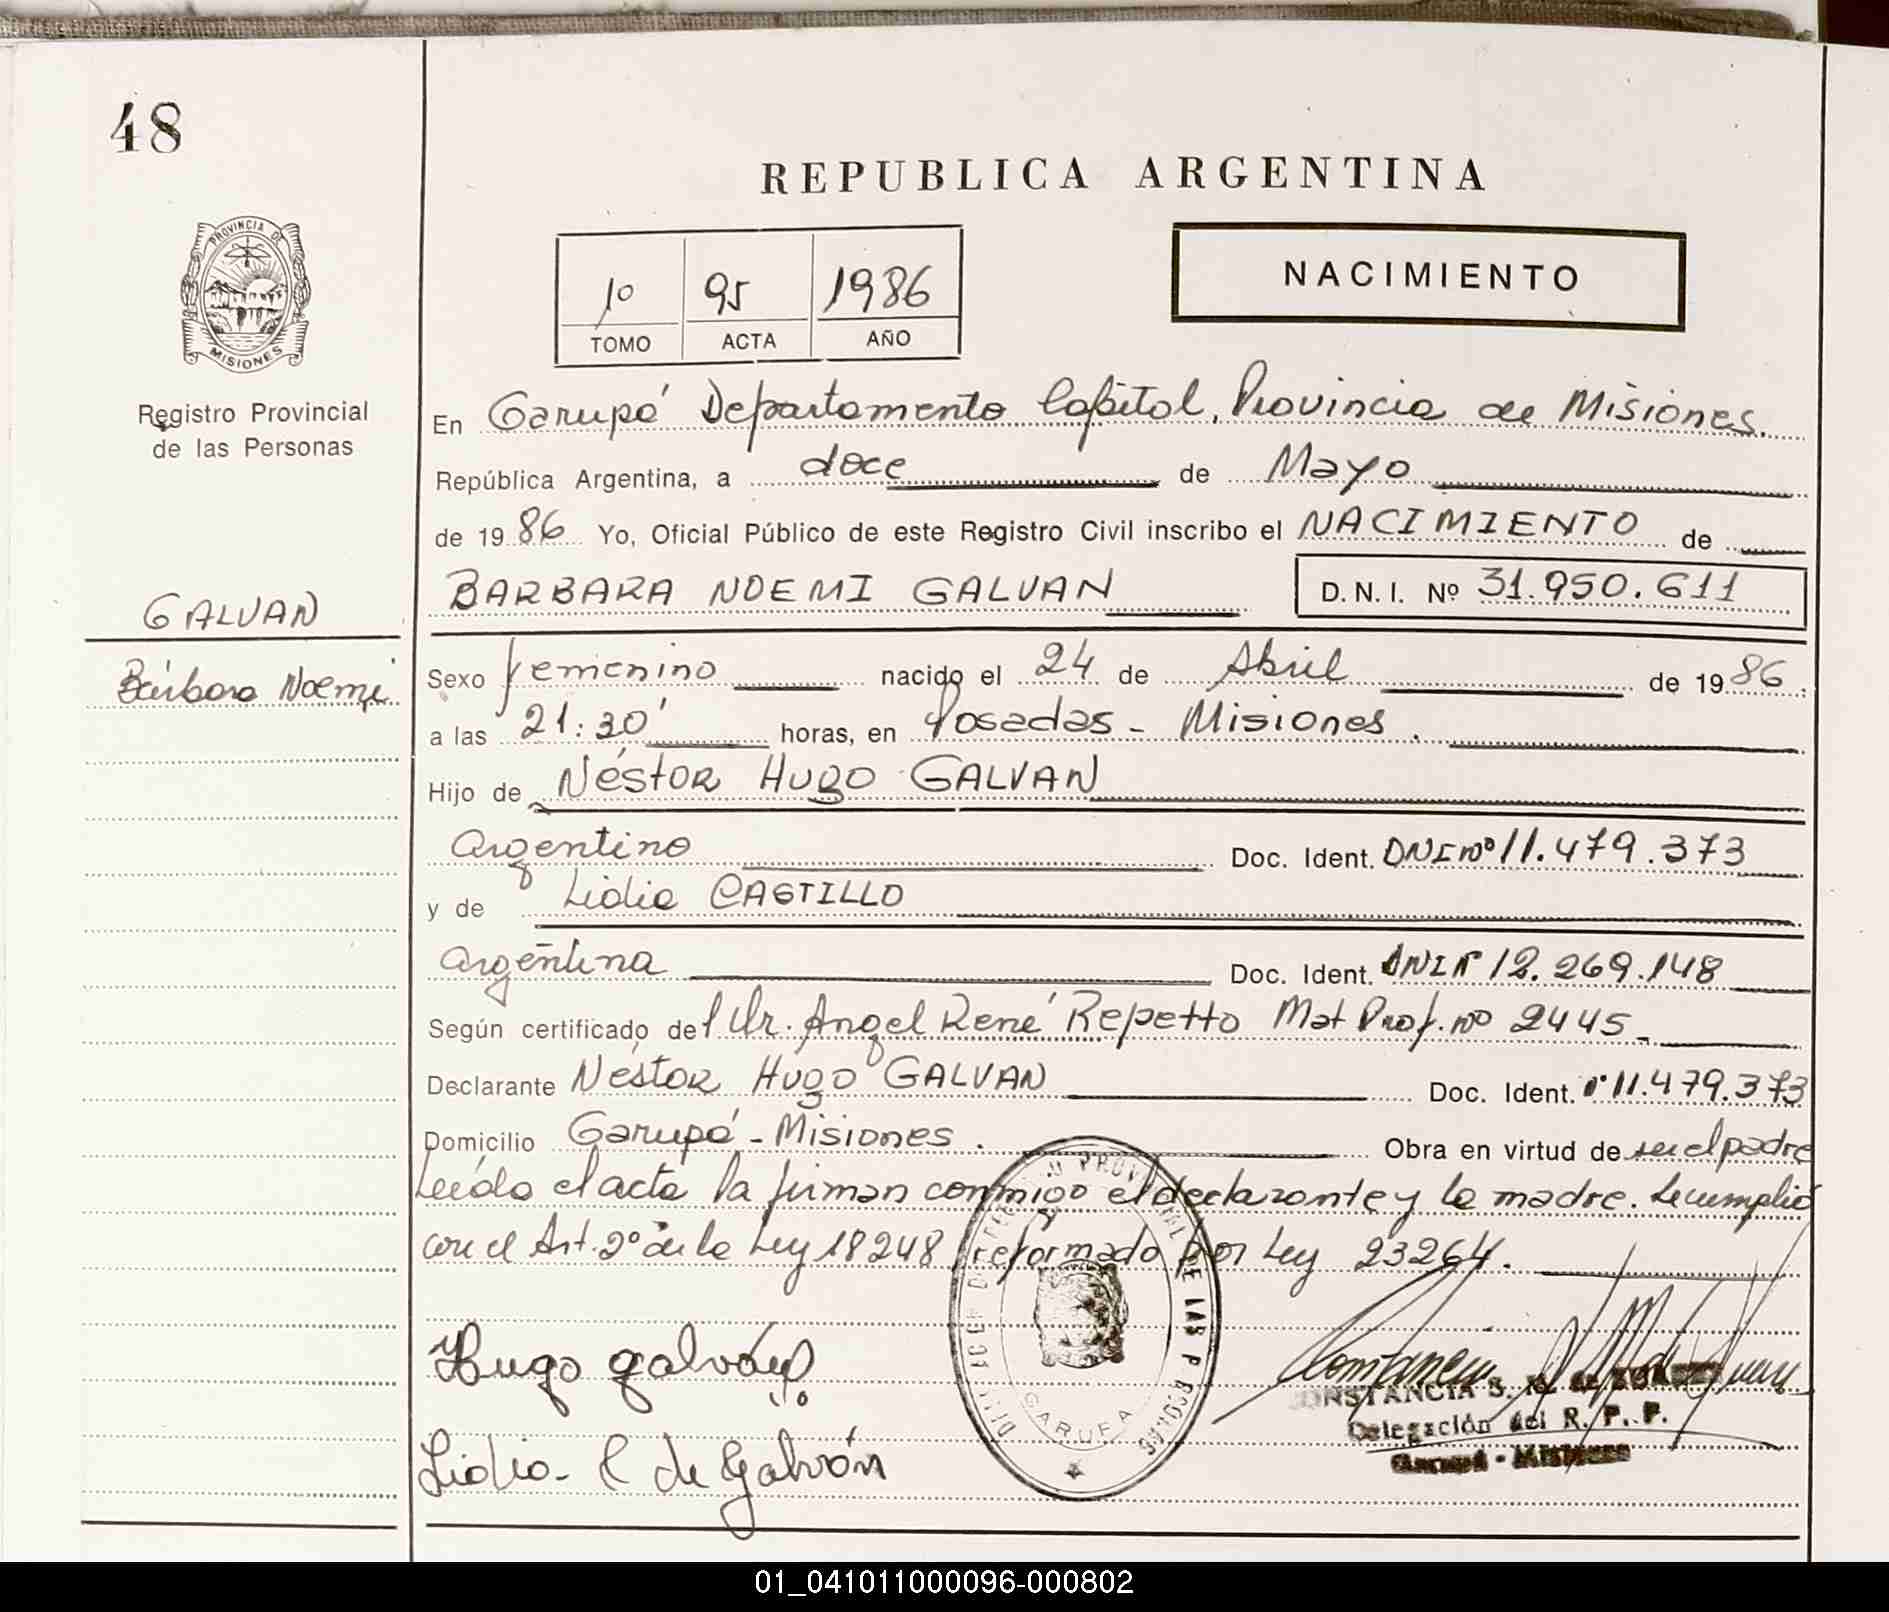 48
REPUBLICA ARGENTINA
PROVINCIA DE
MISIONES
Registro Provincial
de las Personas
1º 95 1986
TOMO ACTA AÑO
NACIMIENTO
En Garupá Departamento Capital, Provincia de Misiones.
República Argentina, a doce de Mayo
de 1986 Yo, Oficial Público de este Registro Civil inscribo el NACIMIENTO de
BARBARA NOEMI GALVAN D.N.I. Nº 31.950.611
GALVAN
Bárbara Noemi
Sexo femenino nacido el 24 de Abril de 1986.
a las 21:30' horas, en Posadas - Misiones.
Hijo de Néstor Hugo GALVAN
argentino Doc. Ident. DNI nº 11.479.373
y de Lidia CASTILLO
argentina Doc. Ident. DNI Nº 12.269.148
Según certificado del Dr. Angel René Repetto Mat Prof. nº 2445-
Declarante Néstor Hugo GALVAN Doc. Ident. 11.479.373
Domicilio Garupá - Misiones. Obra en virtud de ser el padre
Leída el acta la firman conmigo el declarante y la madre. Se cumplió
con el Art. 2º de la Ley 18248 reformado por Ley 23264.
Hugo galván
Lidia C de Galván
GARUPA
CONSTANCIA S. M. de
Delegación del R. P. P.
Garupá - Misiones
01_041011000096-000802